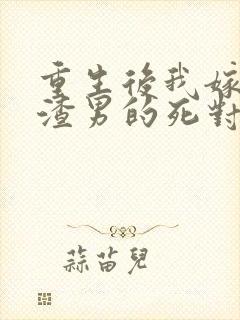 重生後我嫁
渣男的死對
蒜苗兒